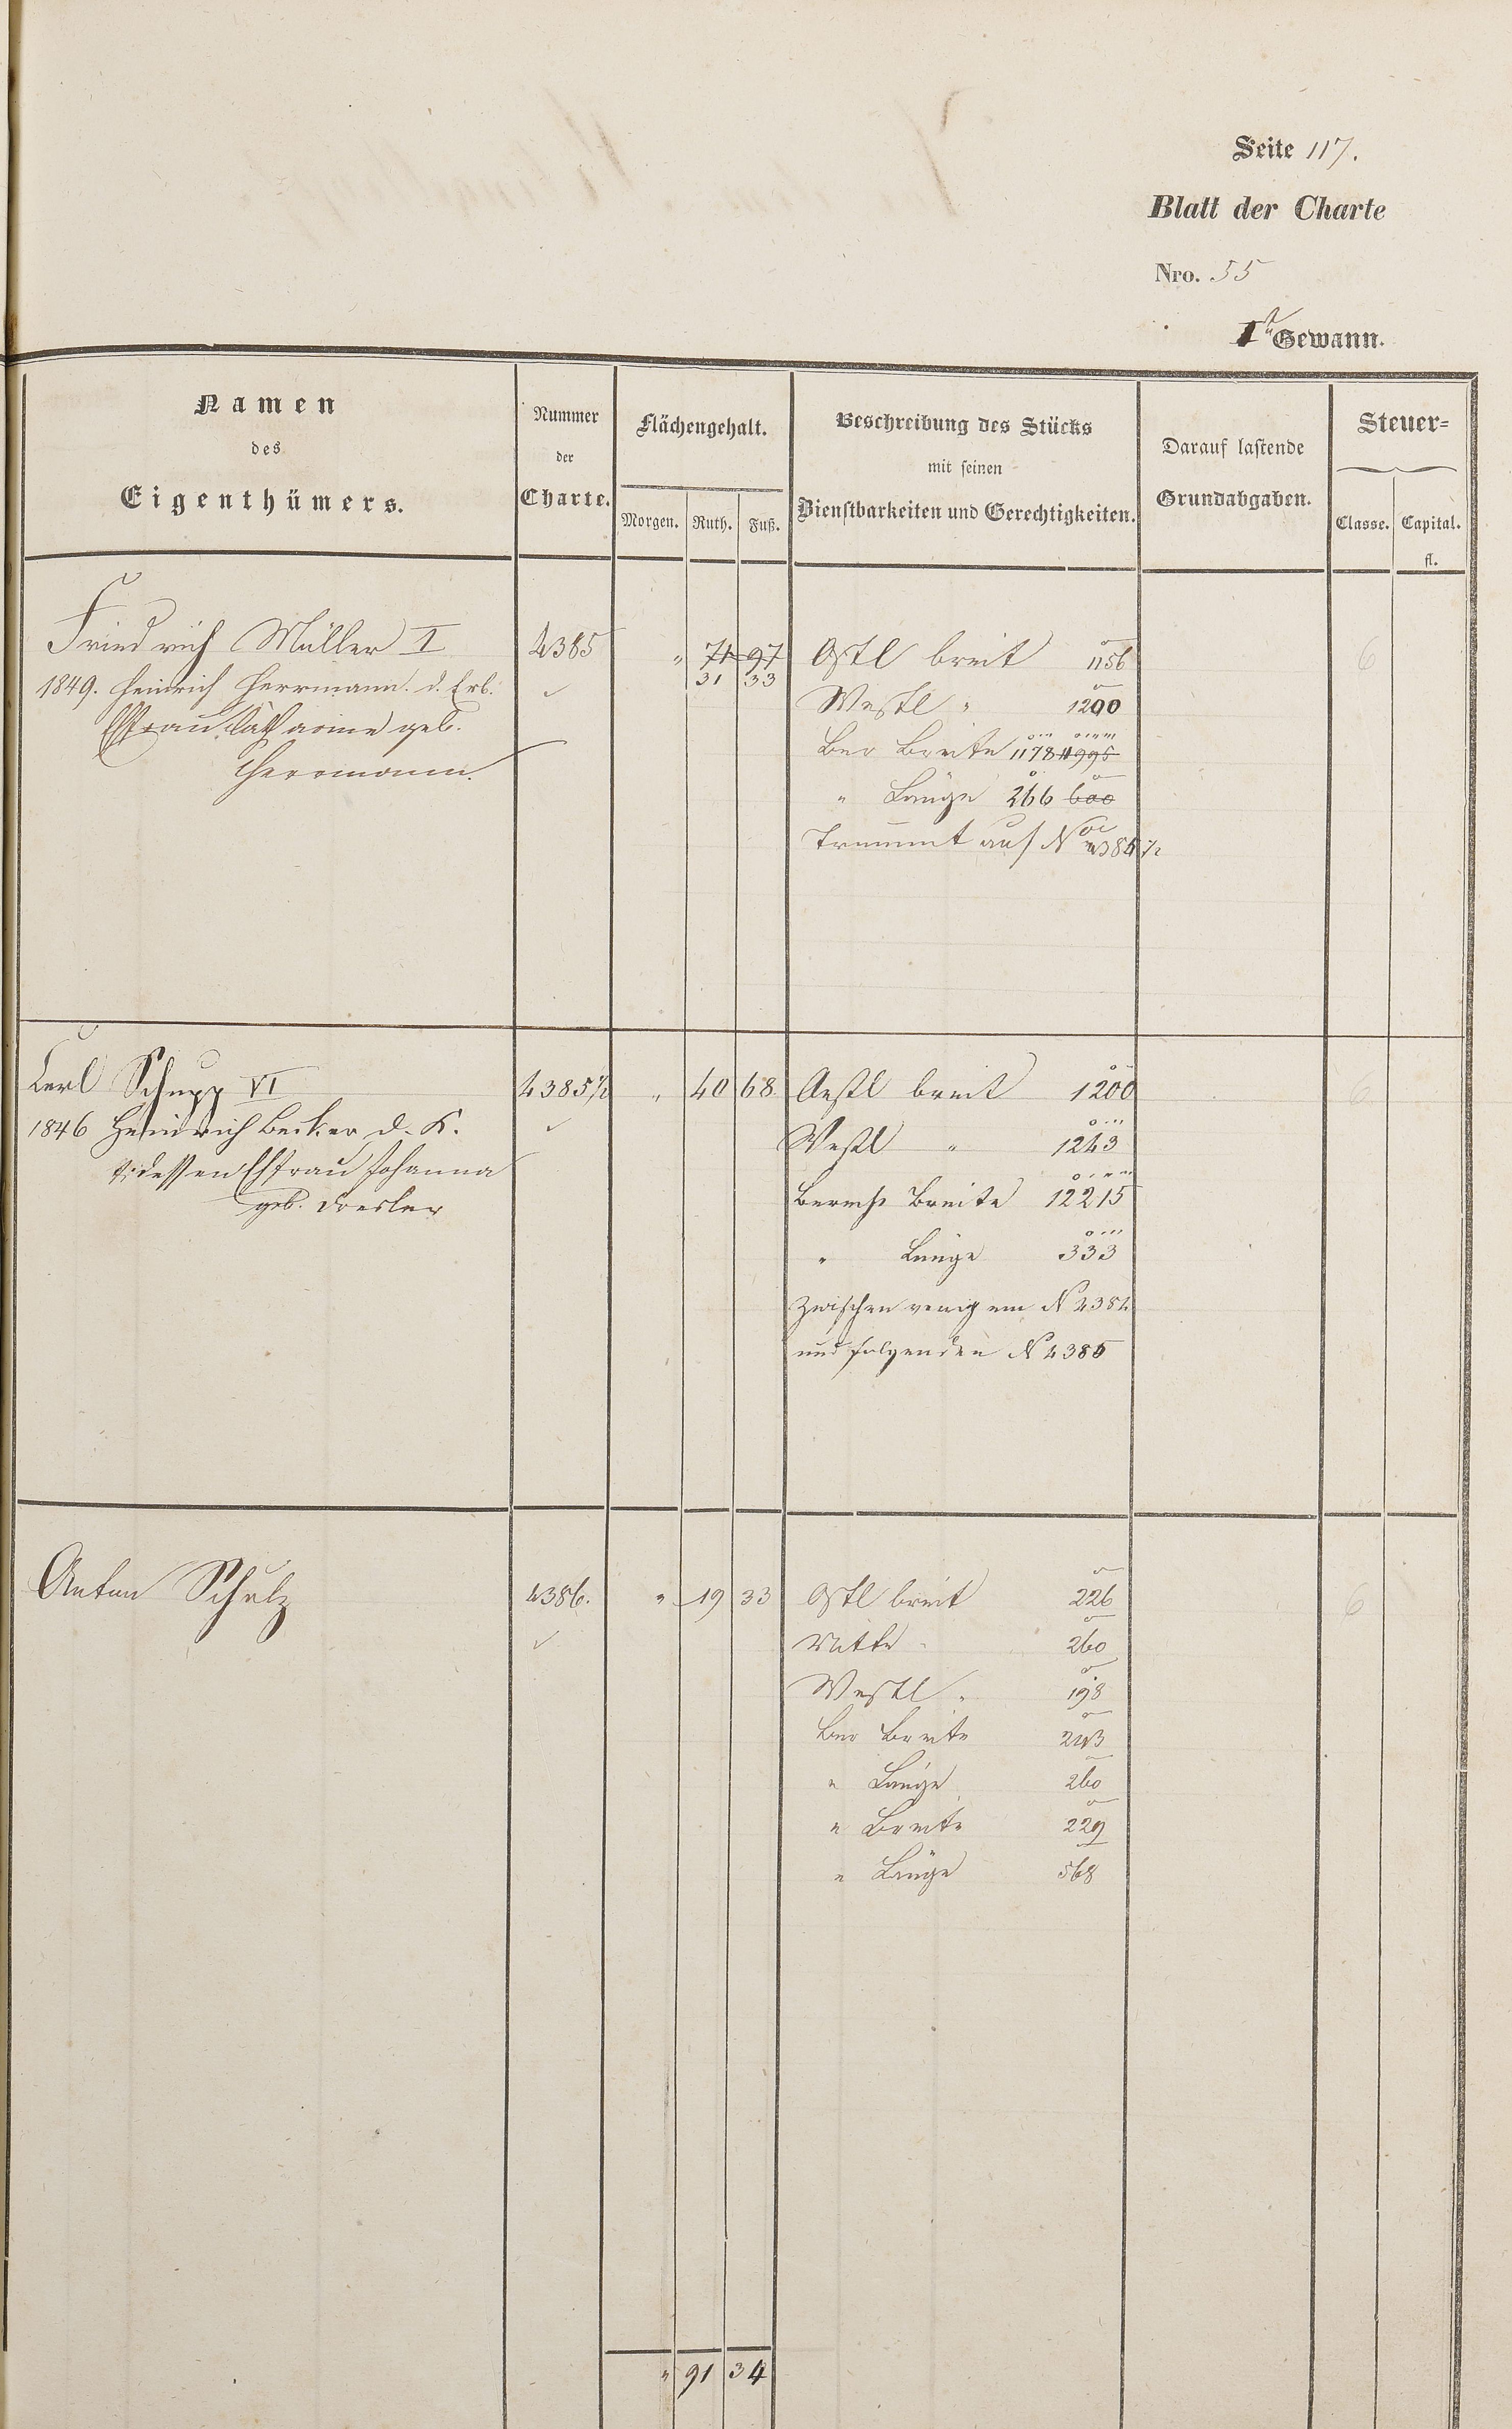 Seite 117.
Blatt der Charte
Nro. 55
I Gewann.
Namen des Eigenthümers.
Nummer der Charte.
Flächengehalt.
Morgen. Ruth. Fuß.
Beschreibung des Stücks mit seinen Dienstbarkeiten und Gerechtigkeiten.
Darauf lastende Grundabgaben.
Steuer=
Classe. Capital.
fl.
Friedrich Müller I 4385 " 71 97 Ostl breit 1156 6
1849. Heinrich Herrmann. d. Erb. ✓ 31 33 Westl " 1200
Ehfrau Katharine geb. Ber Breite 1178 11995
Herrmann. " Länge 266 600
auf No 4384½
Carl Schupp VI 4385½ " 40 68 Oestl breit 1200 6
1846 Heinrich Becker d. K. ✓ Westl " 1243
dessen Ehfrau Johanna Berechte Breite 12215
geb. Doesler " Länge 333
Zwischen vorigem N 4384
und folgenden N 4385
Anton Schulz 4386. " 19 33 Ostl breit 226 6
✓ Mitte " 260
Westl " 198
Ber Breite 243
" Länge 260
" Breite 229
" Länge 568
" 91 34